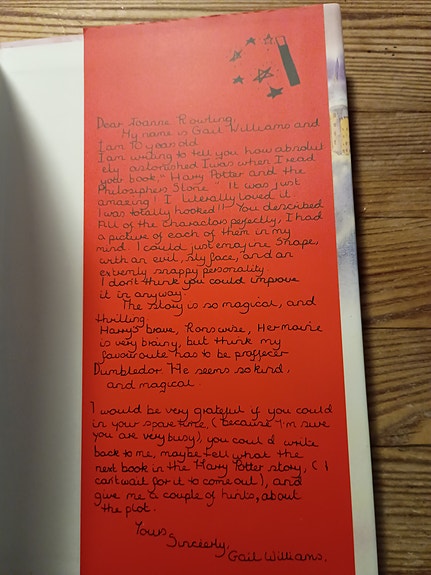 Dear Joanne Rowling,
My name is Gail Williams and
I am 10 years old
I am writing to tell you how absolu
ely astonished I was when I read
your book," Harry Potter and the
Philosophers Stone." It was just
amazing! I literally loved it
I was totally hooked!! You described
All of the Characters perfectly, I had
a picture of each of them in my
mind. I could just emajine Snape,
with an evil, sly face, and an
extremly snappy personality
I don't think you could improve
it in anyway.
The story is so magical, and
thrilling.
Harry's brave, Rons wise, Hermainie
is very brainy, but think my
favouroute has to be proffecer
Dumbledor. He seems so kind,
and magical.
I would be very grateful if you could
in your spare time, (because I'm sure
you are very busy) you could write
back to me, maybe tell what the
next book in the Harry Potter story, ( I
can't wait for it to come out), and
give me a couple of hints, about
the plot.
Yours
Sincierly,
Gail Williams.